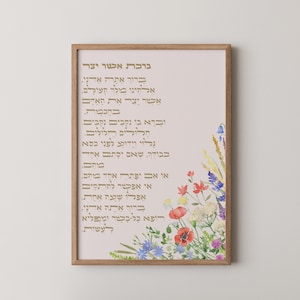 ברכת אשר יצר
ברוך אתה אדני,
אלהינו מלך העולם,
אשר יצר את האדם
בחכמה,
וברא בו נקבים נקבים
חלולים חלולים.
גלוי וידוע לפני כסא
כבודך, שאם יסתם אחד
מהם,
או אם יפתח אחד מהם,
אי אפשר להתקיים
אפלו שעה אחת.
ברוך אתה אדני,
רופא כל בשר ומפליא
לעשות